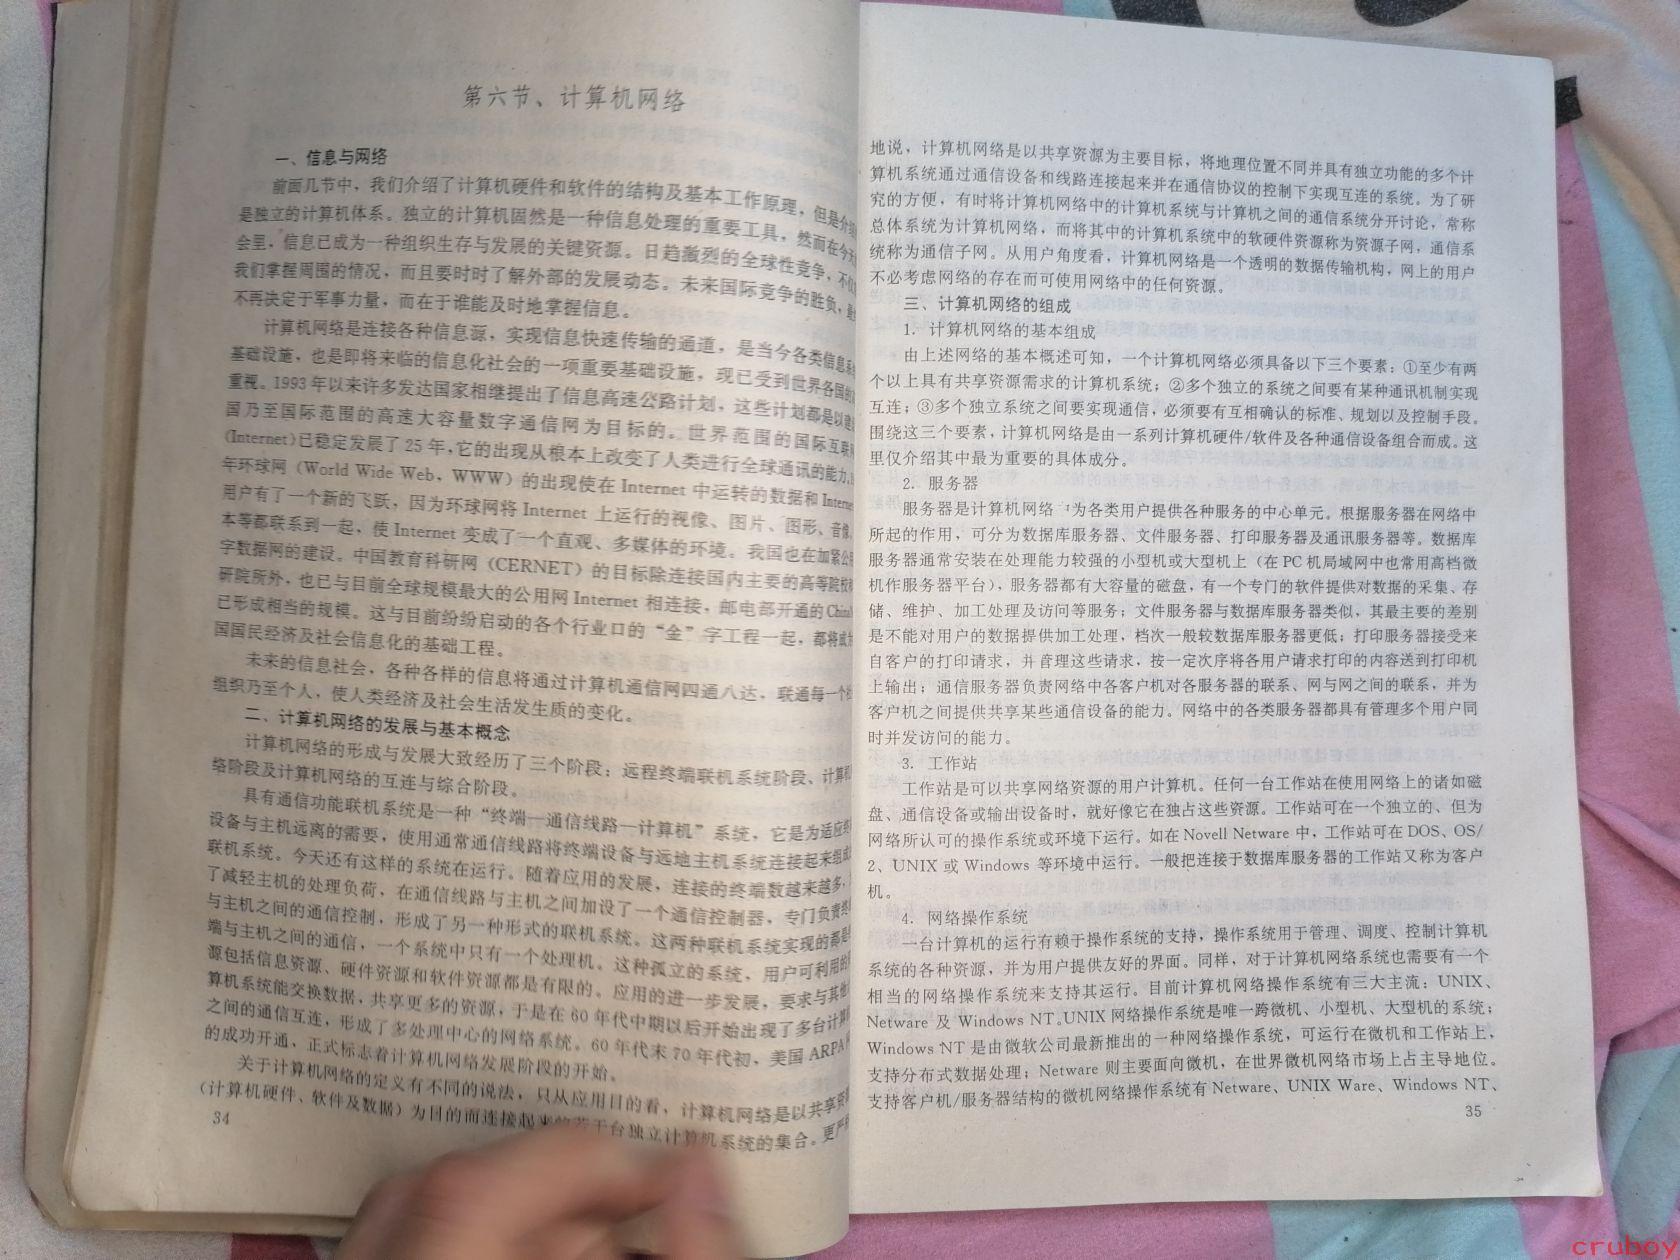 第六节、计算机网络
一、信息与网络
前面几节中，我们介绍了计算机硬件和软件的结构及基本工作原理，但是介绍
是独立的计算机体系。独立的计算机固然是一种信息处理的重要工具，然而在今天
会里，信息已成为一种组织生存与发展的关键资源。日趋激烈的全球性竞争，不仅
我们掌握周围的情况，而且要时时了解外部的发展动态。未来国际竞争的胜负，
不再决定于军事力量，而在于谁能及时地掌握信息。
计算机网络是连接各种信息源，实现信息快速传输的通道，是当今各类信息系
基础设施，也是即将来临的信息化社会的一项重要基础设施，现已受到世界各国的
重视。1993年以来许多发达国家相继提出了信息高速公路计划，这些计划都是以建
国乃至国际范围的高速大容量数字通信网为目标的。世界范围的国际互联网
(Internet)已稳定发展了25年，它的出现从根本上改变了人类进行全球通讯的能力，
年环球网（World Wide Web，WWW）的出现使在 Internet 中运转的数据和 Internet
用户有了一个新的飞跃，因为环球网将 Internet 上运行的视像、图片、图形、音像、
本等都联系到一起，使 Internet 变成了一个直观、多媒体的环境。我国也在加紧公用
字数据网的建设。中国教育科研网（CERNET）的目标除连接国内主要的高等院校
研院所外，也已与目前全球规模最大的公用网 Internet 相连接，邮电部开通的 China
已形成相当的规模。这与目前纷纷启动的各个行业口的“金”字工程一起，都将成为
国国民经济及社会信息化的基础工程。
未来的信息社会，各种各样的信息将通过计算机通信网四通八达，联通每一个
组织乃至个人，使人类经济及社会生活发生质的变化。
二、计算机网络的发展与基本概念
计算机网络的形成与发展大致经历了三个阶段：远程终端联机系统阶段、计算机
络阶段及计算机网络的互连与综合阶段。
具有通信功能联机系统是一种“终端—通信线路—计算机”系统，它是为适应终
设备与主机远离的需要，使用通常通信线路将终端设备与远地主机系统连接起来组成
联机系统。今天还有这样的系统在运行。随着应用的发展，连接的终端数越来越多，
了减轻主机的处理负荷，在通信线路与主机之间加设了一个通信控制器，专门负责终
与主机之间的通信控制，形成了另一种形式的联机系统。这两种联机系统实现的都是
端与主机之间的通信，一个系统中只有一个处理机。这种孤立的系统，用户可利用的
源包括信息资源、硬件资源和软件资源都是有限的。应用的进一步发展，要求与其他
算机系统能交换数据，共享更多的资源，于是在60年代中期以后开始出现了多台计算
之间的通信互连，形成了多处理中心的网络系统。60年代末70年代初，美国 ARPA
的成功开通，正式标志着计算机网络发展阶段的开始。
关于计算机网络的定义有不同的说法，只从应用目的看，计算机网络是以共享资源
（计算机硬件、软件及数据）为目的而连接起来的若干台独立计算机系统的集合。更严
34
地说，计算机网络是以共享资源为主要目标，将地理位置不同并具有独立功能的多个计
算机系统通过通信设备和线路连接起来并在通信协议的控制下实现互连的系统。为了研
究的方便，有时将计算机网络中的计算机系统与计算机之间的通信系统分开讨论，常称
总体系统为计算机网络，而将其中的计算机系统中的软硬件资源称为资源子网，通信系
统称为通信子网。从用户角度看，计算机网络是一个透明的数据传输机构，网上的用户
不必考虑网络的存在而可使用网络中的任何资源。
三、计算机网络的组成
1．计算机网络的基本组成
由上述网络的基本概述可知，一个计算机网络必须具备以下三个要素：①至少有两
个以上具有共享资源需求的计算机系统；②多个独立的系统之间要有某种通讯机制实现
互连；③多个独立系统之间要实现通信，必须要有互相确认的标准、规划以及控制手段。
围绕这三个要素，计算机网络是由一系列计算机硬件/软件及各种通信设备组合而成。这
里仅介绍其中最为重要的具体成分。
2．服务器
服务器是计算机网络 为各类用户提供各种服务的中心单元。根据服务器在网络中
所起的作用，可分为数据库服务器、文件服务器、打印服务器及通讯服务器等。数据库
服务器通常安装在处理能力较强的小型机或大型机上（在PC机局域网中也常用高档微
机作服务器平台），服务器都有大容量的磁盘，有一个专门的软件提供对数据的采集、存
储、维护、加工处理及访问等服务；文件服务器与数据库服务器类似，其最主要的差别
是不能对用户的数据提供加工处理，档次一般较数据库服务器更低；打印服务器接受来
自客户的打印请求，并管理这些请求，按一定次序将各用户请求打印的内容送到打印机
上输出；通信服务器负责网络中各客户机对各服务器的联系、网与网之间的联系，并为
客户机之间提供共享某些通信设备的能力。网络中的各类服务器都具有管理多个用户同
时并发访问的能力。
3．工作站
工作站是可以共享网络资源的用户计算机。任何一台工作站在使用网络上的诸如磁
盘、通信设备或输出设备时，就好像它在独占这些资源。工作站可在一个独立的、但为
网络所认可的操作系统或环境下运行。如在 Novell Netware 中，工作站可在 DOS、OS/
2、UNIX 或 Windows 等环境中运行。一般把连接于数据库服务器的工作站又称为客户
机。
4．网络操作系统
一台计算机的运行有赖于操作系统的支持，操作系统用于管理、调度、控制计算机
系统的各种资源，并为用户提供友好的界面。同样，对于计算机网络系统也需要有一个
相当的网络操作系统来支持其运行。目前计算机网络操作系统有三大主流：UNIX、
Netware 及 Windows NT。UNIX 网络操作系统是唯一跨微机、小型机、大型机的系统；
Windows NT 是由微软公司最新推出的一种网络操作系统，可运行在微机和工作站上，
支持分布式数据处理；Netware 则主要面向微机，在世界微机网络市场上占主导地位。
支持客户机/服务器结构的微机网络操作系统有 Netware、UNIX Ware、Windows NT、
35
cruboy